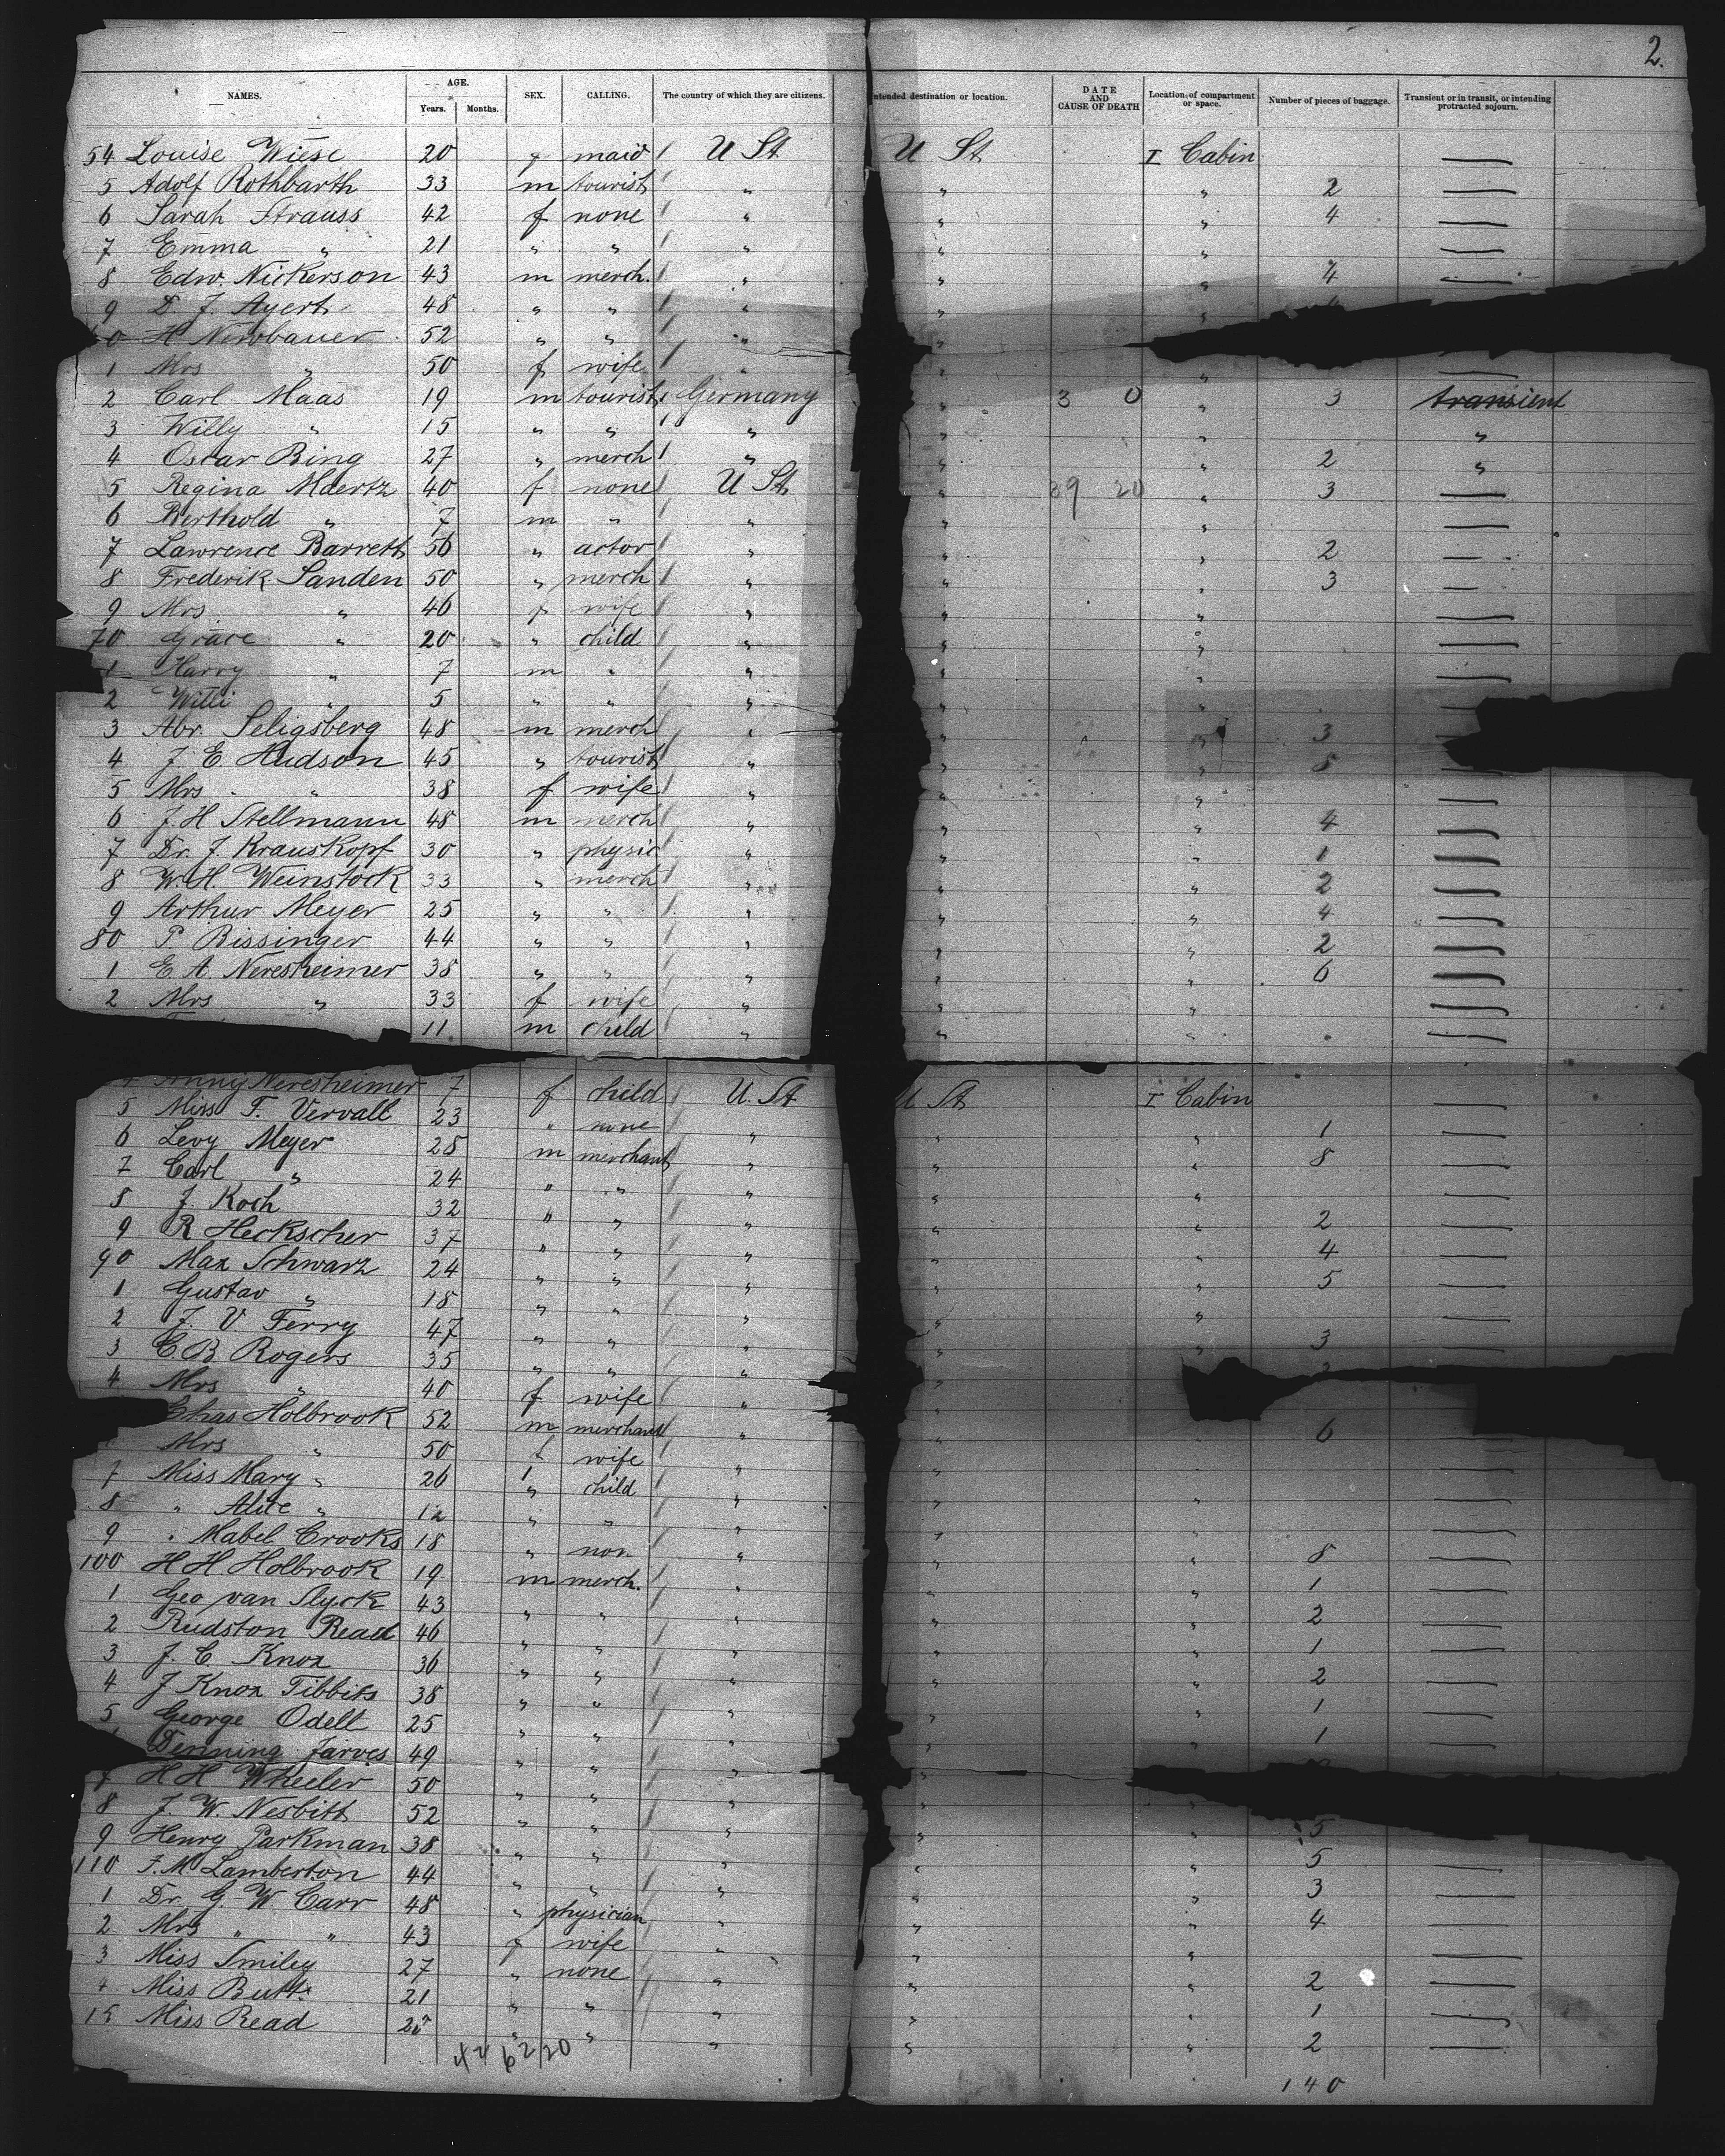 2.
NAMES. AGE. Years. Months. SEX. CALLING. The country of which they are citizens. Intended destination or location. DATE AND CAUSE OF DEATH Location of compartment or space. Number of pieces of baggage. Transient or in transit, or intending protracted sojourn.
54 Louise Wiese 20 f maid U St U St I Cabin —
5 Adolf Rothbarth 33 m tourist " " " 2 —
6 Sarah Strauss 42 f none " " " 4 —
7 Emma " 21 " " " " " —
8 Edw. Nickerson 43 m merch. " " " 4 —
9 D. J. Ayert 48 " " " " "
60 H Newbauer 52 " " " "
1 Mrs " 50 f wife " " " —
2 Carl Maas 19 m tourist Germany " 3 0 " 3 transient
3 Willy " 15 " " " " " "
4 Oscar Bing 27 " merch " " " 2 "
5 Regina Maertz 40 f none U St " 39 20 " 3 —
6 Berthold " 7 m " " " " —
7 Lawrence Barrett 50 " actor " " " 2 —
8 Frederik Sanden 50 " merch " " " 3 —
9 Mrs " 46 f wife " " " —
70 Grace " 20 " child " " " —
1 Harry " 7 m " " " " —
2 Willi " 5 " " " " "
3 Abr. Seligsberg 48 m merch " " " 3
4 J. E. Hudson 45 " tourist " " " 8 —
5 Mrs " 38 f wife " " " —
6 J. H Stellmann 48 m merch " " " 4 —
7 Dr. J. Krauskopf 30 " physic " " " 1 —
8 W. H. Weinstock 33 " merch " " " 2 —
9 Arthur Meyer 25 " " " " " 4 —
80 P. Bissinger 44 " " " " " 2 —
1 E. A. Neresheimer 38 " " " " " 6 —
2 Mrs " 33 f wife " " " —
11 m child " " " —
4 Anny Neresheimer 7 f child U. St U St I Cabin —
5 Miss F. Vervall 23 " none " " " 1 —
6 Levy Meyer 28 m merchant " " " 8 —
7 Carl " 24 " " " " " —
8 J. Koch 32 " " " " " 2 —
9 R Heckscher 37 " " " " " 4 —
90 Max Schwarz 24 " " " " " 5 —
1 Gustav " 18 " " " " " —
2 J. V. Ferry 47 " " " " " 3 —
3 C. B. Rogers 35 " " " "
4 Mrs " 40 f wife " "
Chas Holbrook 52 m merchant " " " 6 —
Mrs " 50 f wife " " —
7 Miss Mary " 26 " child " " " —
8 " Alice " 12 " " " " " —
9 " Mabel Crooks 18 " non " " " 8 —
100 H H Holbrook 19 m merch. " " " 1 —
1 Geo van Slyck 43 " " " " " 2 —
2 Rudston Read 46 " " " " " 1 —
3 J. C. Knox 36 " " " " " 2 —
4 J Knox Tibbits 38 " " " " " 1 —
5 George Odell 25 " " " " " 1 —
Denning Jarves 49 " " " "
7 H H Wheeler 50 " " " " "
8 J. W. Nesbitt 52 " " " " " 5
9 Henry Parkman 38 " " " " " 5 —
110 F. M Lamberton 44 " " " " " 3 —
1 Dr. G. W. Carr 48 " physician " " " 4 —
2 Mrs " " 43 f wife " " " —
3 Miss Smiley 27 " none " " " 2 —
4 Miss Butts 21 " " " " " 1 —
15 Miss Read " " " " " 2 —
140